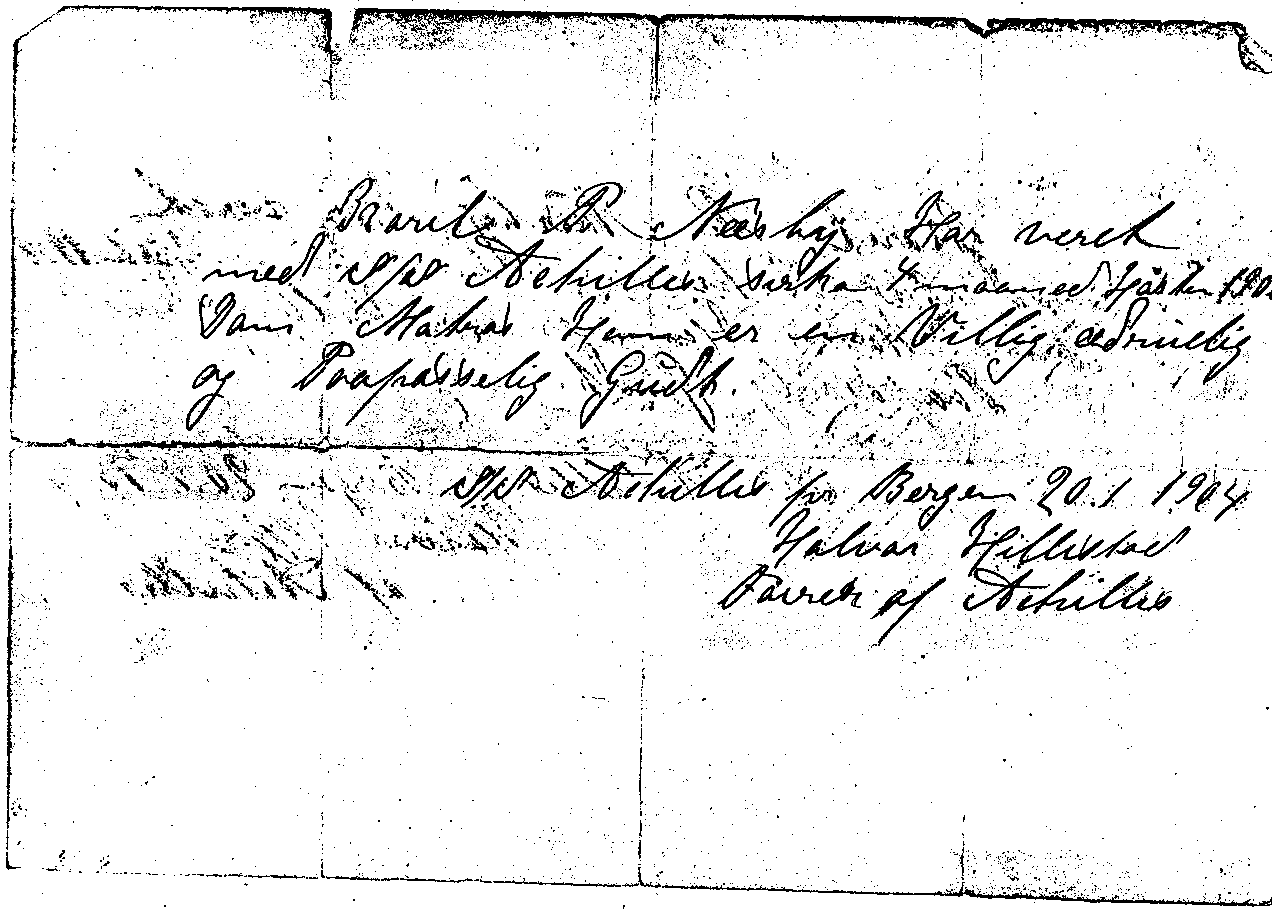 Bzoril P. Næsby Har veret
med S/S Achilles sirka 4 maaned Hästen 190
Som Matros Han er en Villig ædruelig
og Paapasselig Gudt.
S/S Achilles pr Bergen 20.1 1904
Halvar Hillestad
Förrer af Achilles